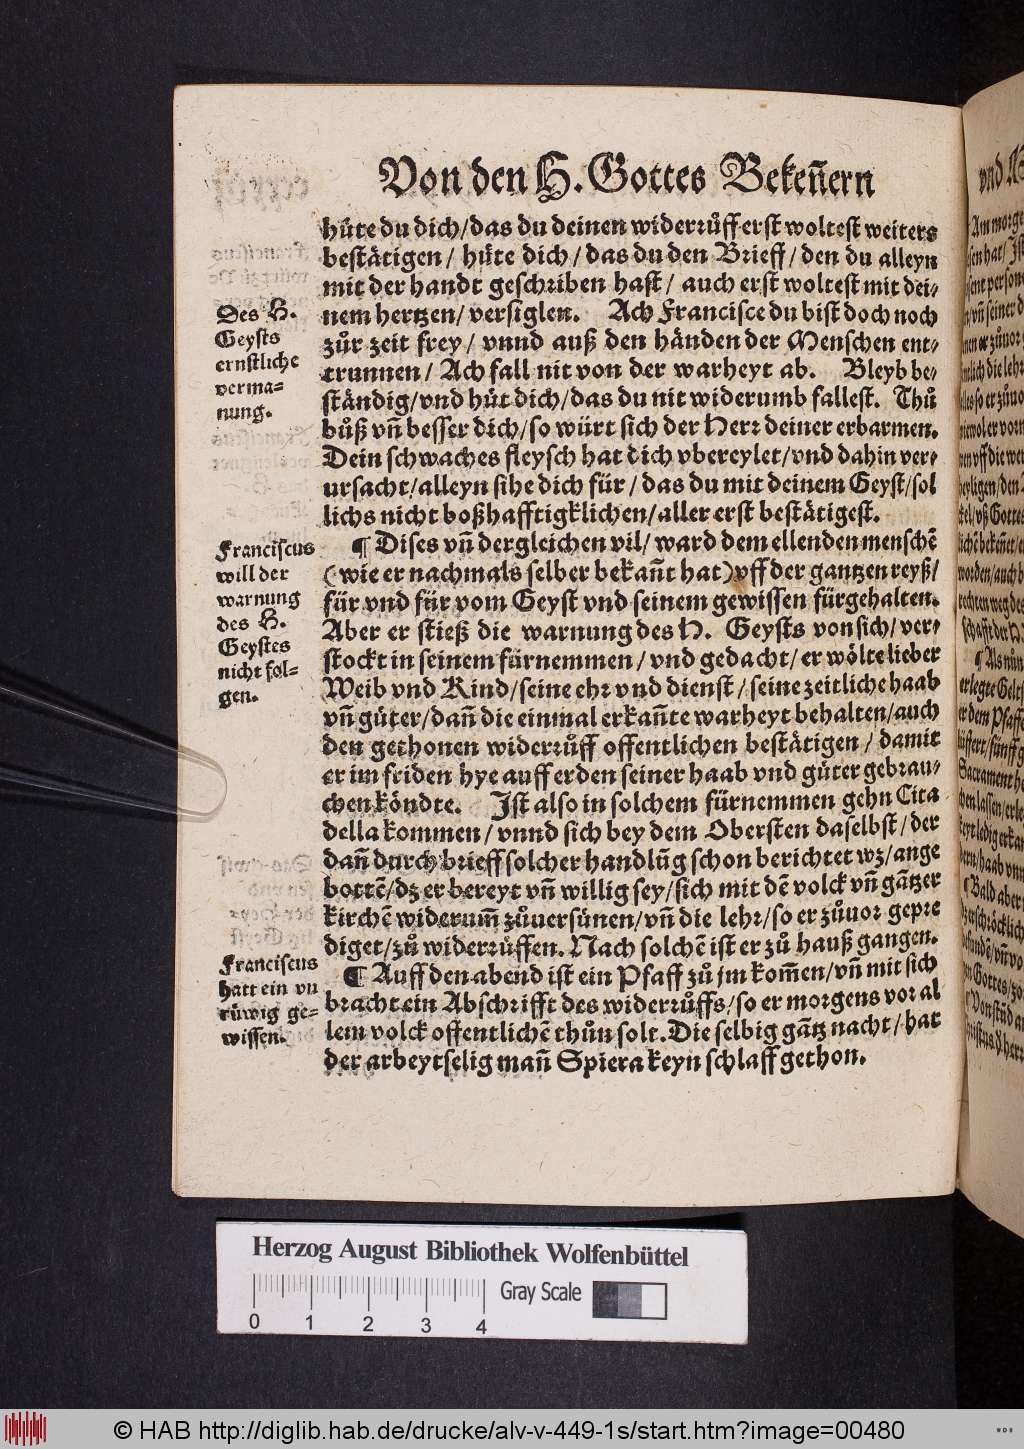 Von den H. Gottes Bekeñern
hüte du dich/das du deinen widerrůff erst woltest weiters
bestätigen/ hüte dich/das du den Brieff/den du alleyn
mit der handt geschriben hast/ auch erst woltest mit dei⸗
nem hertzen/ versiglen. Ach Francisce du bist doch noch
zůr zeit frey/ vnnd auß den händen der Menschen ent⸗
trunnen/ Ach fall nit von der warheyt ab. Bleyb be⸗
ständig/vnd hüt dich/das du nit widerumb fallest. Thů
bůß vñ besser dich/so würt sich der Herr deiner erbarmen.
Dein schwaches fleysch hat dich vbereylet/vnd dahin ver⸗
ursacht/alleyn sihe dich für/das du mit deinem Geyst/sol
lichs nicht boßhafftigklichen/aller erst bestätigest.
¶ Dises vñ dergleichen vil/ ward dem ellenden menschẽ
(wie er nachmals selber bekañt hat)vff der gantzen reyß/
für vnd für vom Geyst vnd seinem gewissen fürgehalten.
Aber er stieß die warnung des H. Geysts von sich/ ver⸗
stockt in seinem fürnemmen/vnd gedacht/er wölte lieber
Weib vnd Kind/seine ehr vnd dienst/seine zeitliche haab
vñ güter/dañ die einmal erkañte warheyt behalten/auch
den gethonen widerrůff offentlichen bestätigen/ damit
er im friden hye auff erden seiner haab vnd güter gebrau⸗
chen köndte. Ist also in solchem fürnemmen gehn Cita
della kommen/vnnd sich bey dem Obersten daselbst/der
dañ durch brieff solcher handlũg schon berichtet wz/ange
bottẽ/dz er bereyt vñ willig sey/sich mit dẽ volck vñ gãtzer
kirchẽ widerum̃ zůuersünen/vñ die lehr/so er zůuor gepre
diget/zů widerrůffen. Nach solchẽ ist er zů hauß gangen.
¶ Auff den abend ist ein Pfaff zů jm kom̃en/vñ mit sich
bracht ein Abschrifft des widerrůffs/so er morgens vor al
lem volck offentlichẽ thůn solt. Die selbig gãtz nacht/hat
der arbeytselig mañ Spiera keyn schlaff gethon.
Des H.
Geysts
ernstliche
verma⸗
nung.
Franciscus
will der
warnung
des H.
Geystes
nicht fol⸗
gen.
Franciscus
hatt ein vn
rüwig ge⸗
wissen.
Herzog August Bibliothek Wolfenbüttel
Gray Scale
0 1 2 3 4
© HAB http://diglib.hab.de/drucke/alv-v-449-1s/start.htm?image=00480